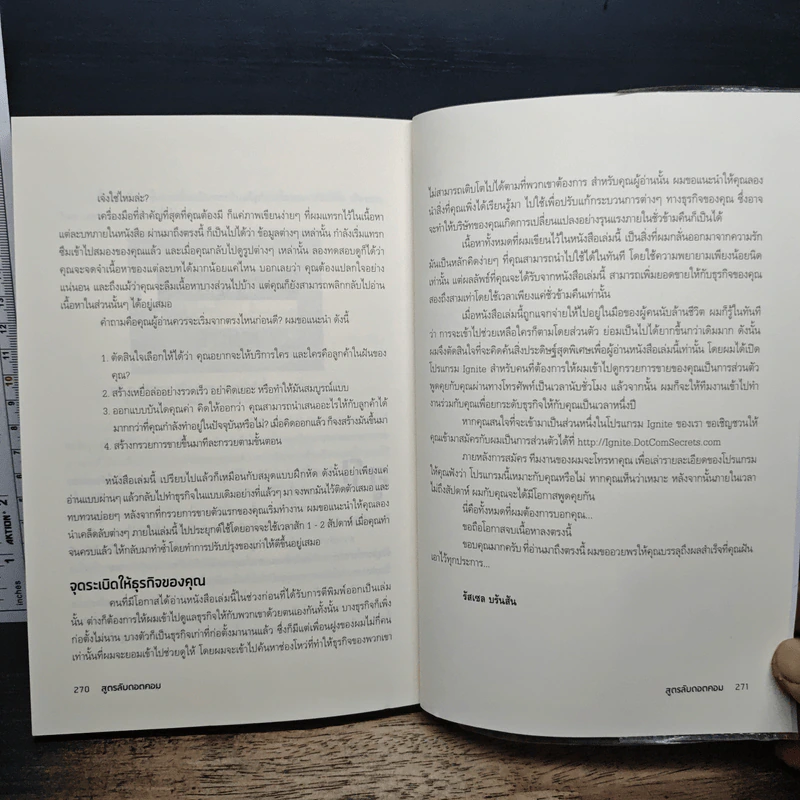 เจ๋งใช่ไหมล่ะ?
เครื่องมือที่สำคัญที่สุดที่คุณต้องมี ก็แค่ภาพเขียนง่ายๆ ที่ผมแทรกไว้ในเนื้อหา
แต่ละบทภายในหนังสือ ผ่านมาถึงตรงนี้ ก็เป็นไปได้ว่า ข้อมูลต่างๆ เหล่านั้น กำลังเริ่มแทรก
ซึมเข้าไปสมองของคุณแล้ว และเมื่อคุณกลับไปดูรูปต่างๆ เหล่านั้น ลองทดสอบดูก็ได้ว่า
คุณจะจดจำเนื้อหาของแต่ละบทได้มากน้อยแค่ไหน บอกเลยว่า คุณต้องแปลกใจอย่าง
แน่นอน และถึงแม้ว่าคุณจะลืมเนื้อหาบางส่วนไปบ้าง แต่คุณก็ยังสามารถพลิกกลับไปอ่าน
เนื้อหาในส่วนนั้นๆ ได้อยู่เสมอ
คำถามคือคุณผู้อ่านควรจะเริ่มจากตรงไหนก่อนดี? ผมขอแนะนำ ดังนี้
1. ตัดสินใจเลือกให้ได้ว่า คุณอยากจะให้บริการใคร และใครคือลูกค้าในฝันของ
คุณ?
2. สร้างเหยื่อล่ออย่างรวดเร็ว อย่าคิดเยอะ หรือทำให้มันสมบูรณ์แบบ
3. ออกแบบบันไดคุณค่า คิดให้ออกว่า คุณสามารถนำเสนออะไรให้กับลูกค้าได้
มากกว่าที่คุณกำลังทำอยู่ในปัจจุบันหรือไม่? เมื่อคิดออกแล้ว ก็จงสร้างมันขึ้นมา
4. สร้างกรวยการขายขึ้นมาทีละกรวยตามขั้นตอน
หนังสือเล่มนี้ เปรียบไปแล้วก็เหมือนกับสมุดแบบฝึกหัด ดังนั้นอย่าเพียงแค่
อ่านแบบผ่านๆ แล้วกลับไปทำธุรกิจในแบบเดิมอย่างที่แล้วๆ มา จงพกมันไว้ติดตัวเสมอและ
ทบทวนบ่อยๆ หลังจากที่กรวยการขายตัวแรกของคุณเริ่มทำงาน ผมขอแนะนำให้คุณลอง
นำเคล็ดลับต่างๆ ภายในเล่มนี้ ไปประยุกต์ใช้โดยอาจจะใช้เวลาสัก 1 - 2 สัปดาห์ เมื่อคุณทำ
จนครบแล้ว ให้กลับมาทำซ้ำโดยทำการปรับปรุงของเก่าให้ดีขึ้นอยู่เสมอ
จุดระเบิดให้ธุรกิจของคุณ
คนที่มีโอกาสได้อ่านหนังสือเล่มนี้ในช่วงก่อนที่ได้รับการตีพิมพ์ออกเป็นเล่ม
นั้น ต่างก็ต้องการให้ผมเข้าไปดูแลธุรกิจให้กับพวกเขาด้วยตนเองกันทั้งนั้น บางธุรกิจก็เพิ่ง
ก่อตั้งไม่นาน บางตัวก็เป็นธุรกิจเก่าที่ก่อตั้งมานานแล้ว ซึ่งก็มีแต่เพื่อนฝูงของผมไม่กี่คน
เท่านั้นที่ผมจะยอมเข้าไปช่วยดูให้ โดยผมจะเข้าไปค้นหาช่องโหว่ที่ทำให้ธุรกิจของพวกเขา
270 สูตรลับดอตคอม
ไม่สามารถเติบโตไปได้ตามที่พวกเขาต้องการ สำหรับคุณผู้อ่านนั้น ผมขอแนะนำให้คุณลอง
นำสิ่งที่คุณเพิ่งได้เรียนรู้มา ไปใช้เพื่อปรับแก้กระบวนการต่างๆ ทางธุรกิจของคุณ ซึ่งอาจ
จะทำให้บริษัทของคุณเกิดการเปลี่ยนแปลงอย่างรุนแรงภายในชั่วข้ามคืนก็เป็นได้
เนื้อหาทั้งหมดที่ผมเขียนไว้ในหนังสือเล่มนี้ เป็นสิ่งที่ผมกลั่นออกมาจากความรัก
มันเป็นหลักคิดง่ายๆ ที่คุณสามารถนำไปใช้ได้ในทันที โดยใช้ความพยายามเพียงน้อยนิด
เท่านั้น แต่ผลลัพธ์ที่คุณจะได้รับจากหนังสือเล่มนี้ สามารถเพิ่มยอดขายให้กับธุรกิจของคุณ
สองถึงสามเท่าโดยใช้เวลาเพียงแค่ชั่วข้ามคืนเท่านั้น
เมื่อหนังสือเล่มนี้ถูกแจกจ่ายให้ไปอยู่ในมือของผู้คนนับล้านชีวิต ผมก็รู้ในทันที
ว่า การจะเข้าไปช่วยเหลือใครก็ตามโดยส่วนตัว ย่อมเป็นไปได้ยากขึ้นกว่าเดิมมาก ดังนั้น
ผมจึงตัดสินใจที่จะคิดค้นสิ่งประดิษฐ์สุดพิเศษเพื่อผู้อ่านหนังสือเล่มนี้เท่านั้น โดยผมได้เปิด
โปรแกรม Ignite สำหรับคนที่ต้องการให้ผมเข้าไปดูกรวยการขายของคุณเป็นการส่วนตัว
พูดคุยกับคุณผ่านทางโทรศัพท์เป็นเวลานับชั่วโมง แล้วจากนั้น ผมก็จะให้ทีมงานเข้าไปทำ
งานร่วมกับคุณเพื่อยกระดับธุรกิจให้กับคุณเป็นเวลาหนึ่งปี
หากคุณสนใจที่จะเข้ามาเป็นส่วนหนึ่งในโปรแกรม Ignite ของเรา ขอเชิญชวนให้
คุณเข้ามาสมัครกับผมเป็นการส่วนตัวได้ที่ http://Ignite.DotComSecrets.com
ภายหลังการสมัคร ทีมงานของผมจะโทรหาคุณ เพื่อเล่ารายละเอียดของโปรแกรม
ให้คุณฟังว่า โปรแกรมนี้เหมาะกับคุณหรือไม่ หากคุณเห็นว่าเหมาะ หลังจากนั้นภายในเวลา
ไม่ถึงสัปดาห์ ผมกับคุณจะได้มีโอกาสพูดคุยกัน
นี่คือทั้งหมดที่ผมต้องการบอกคุณ...
ขอถือโอกาสจบเนื้อหาลงตรงนี้
ขอบคุณมากครับ ที่อ่านมาถึงตรงนี้ ผมขออวยพรให้คุณบรรลุถึงผลสำเร็จที่คุณฝัน
เอาไว้ทุกประการ...
รัสเซล บรันสัน
สูตรลับดอตคอม 271